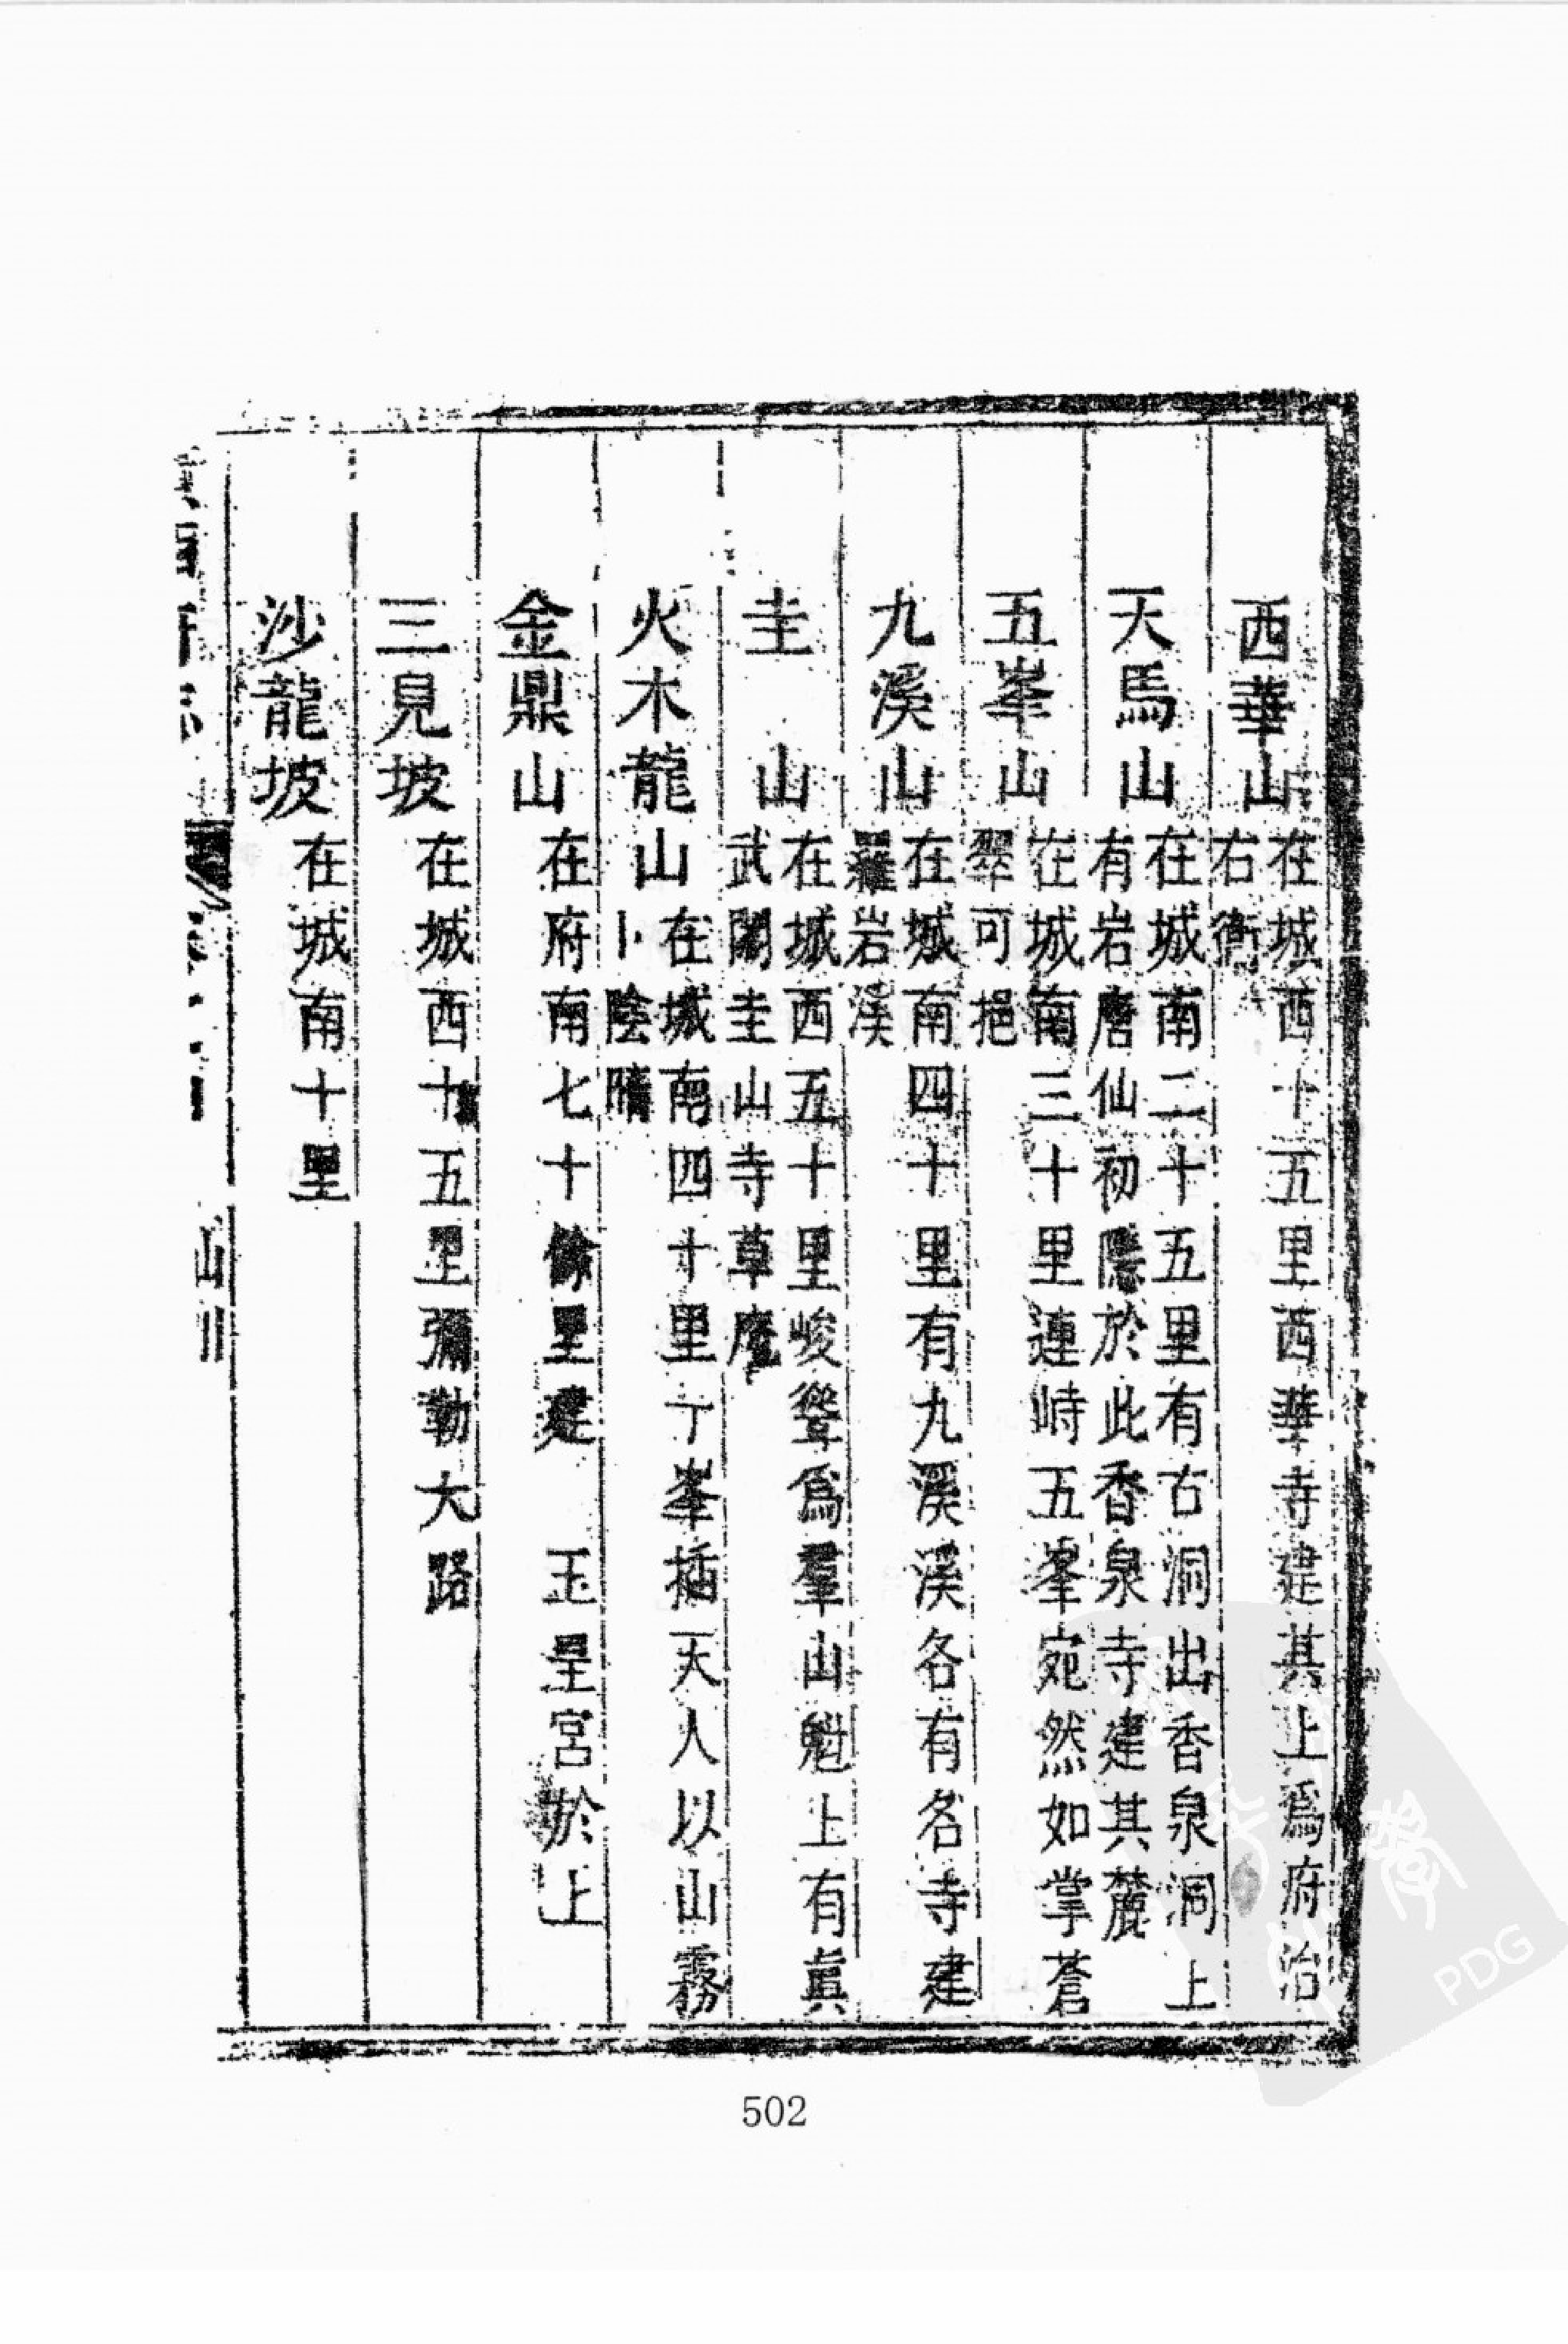 西華山在城西十五里西華寺建其上爲府治
右衛
天馬山在城南二十五里有古洞出香泉洞上
有岩唐仙初隱於此香泉寺建其麓
五峯山在城南三十里連峙五峯宛然如掌蒼
翠可挹
九溪山在城南四十里有九溪溪各有名寺建
羅岩溪
圭山在城西五十里峻聳爲羣山魁上有眞
武閣圭山寺草庵
火木龍山在城南四十里一峯插天人以山霧
卜陰晴
金鼎山在府南七十餘里建 玉皇宮於上
三見坡在城西十五里彌勒大路
沙龍坡在城南十里
山川
502
PDG